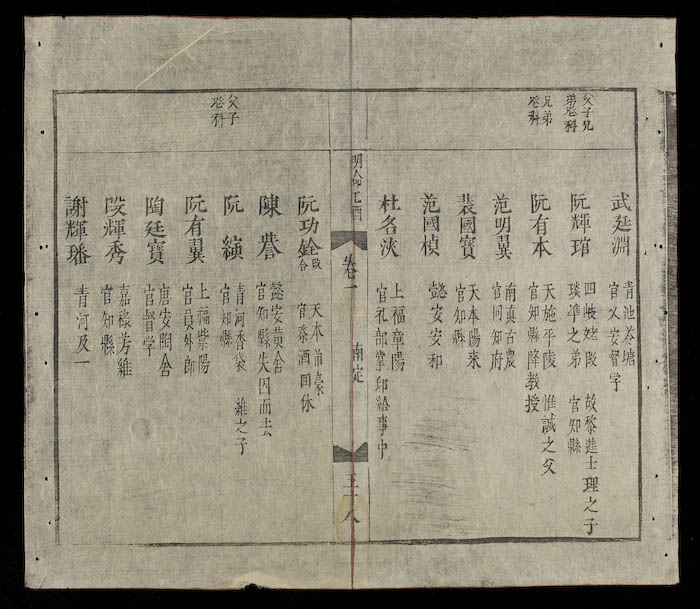 父子兄
弟登科
兄弟
登科
武廷淵
青池苓塘
官乂安督学
阮輝琯
四岐姥㫖 故黎進士理之子
琰準之弟 官知縣
阮有本
天施平陵 惟誠之父
官知縣降教授
范明翼
南真古農
官同知府
裴國寶
天本陽來
官知縣
范國楨
懿安安和
杜名浹
上福章陽
官礼部掌印給事中
明命乙酉
卷一
南定
三十八
阮功銓
改
合
天本前豪
官祭酒回休
陳謩
懿安黄舍
官知縣失因而去
阮縯
青河香袋 維之子
官知縣
阮有翼
上福紫陽
官員外郎
陶廷寶
唐安陶舍
官督学
段輝秀
嘉祿芳維
官知縣
謝輝璠
青河及一
父子
登科